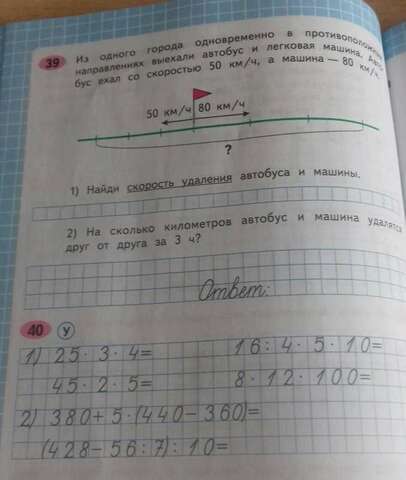 39 Из одного города одновременно в противоположных
направлениях выехали автобус и легковая машина. Авто-
бус ехал со скоростью 50 км/ч, а машина — 80 км/ч.
50 км/ч 80 км/ч
?
1) Найди скорость удаления автобуса и машины.
2) На сколько километров автобус и машина удалятся
друг от друга за 3 ч?
Ответ:
40 У
1) 25 · 3 · 4 = 16 : 4 · 5 · 10 =
45 · 2 · 5 = 8 · 12 · 100 =
2) 380 + 5 · (440 − 360) =
(428 − 56 : 7) : 10 =